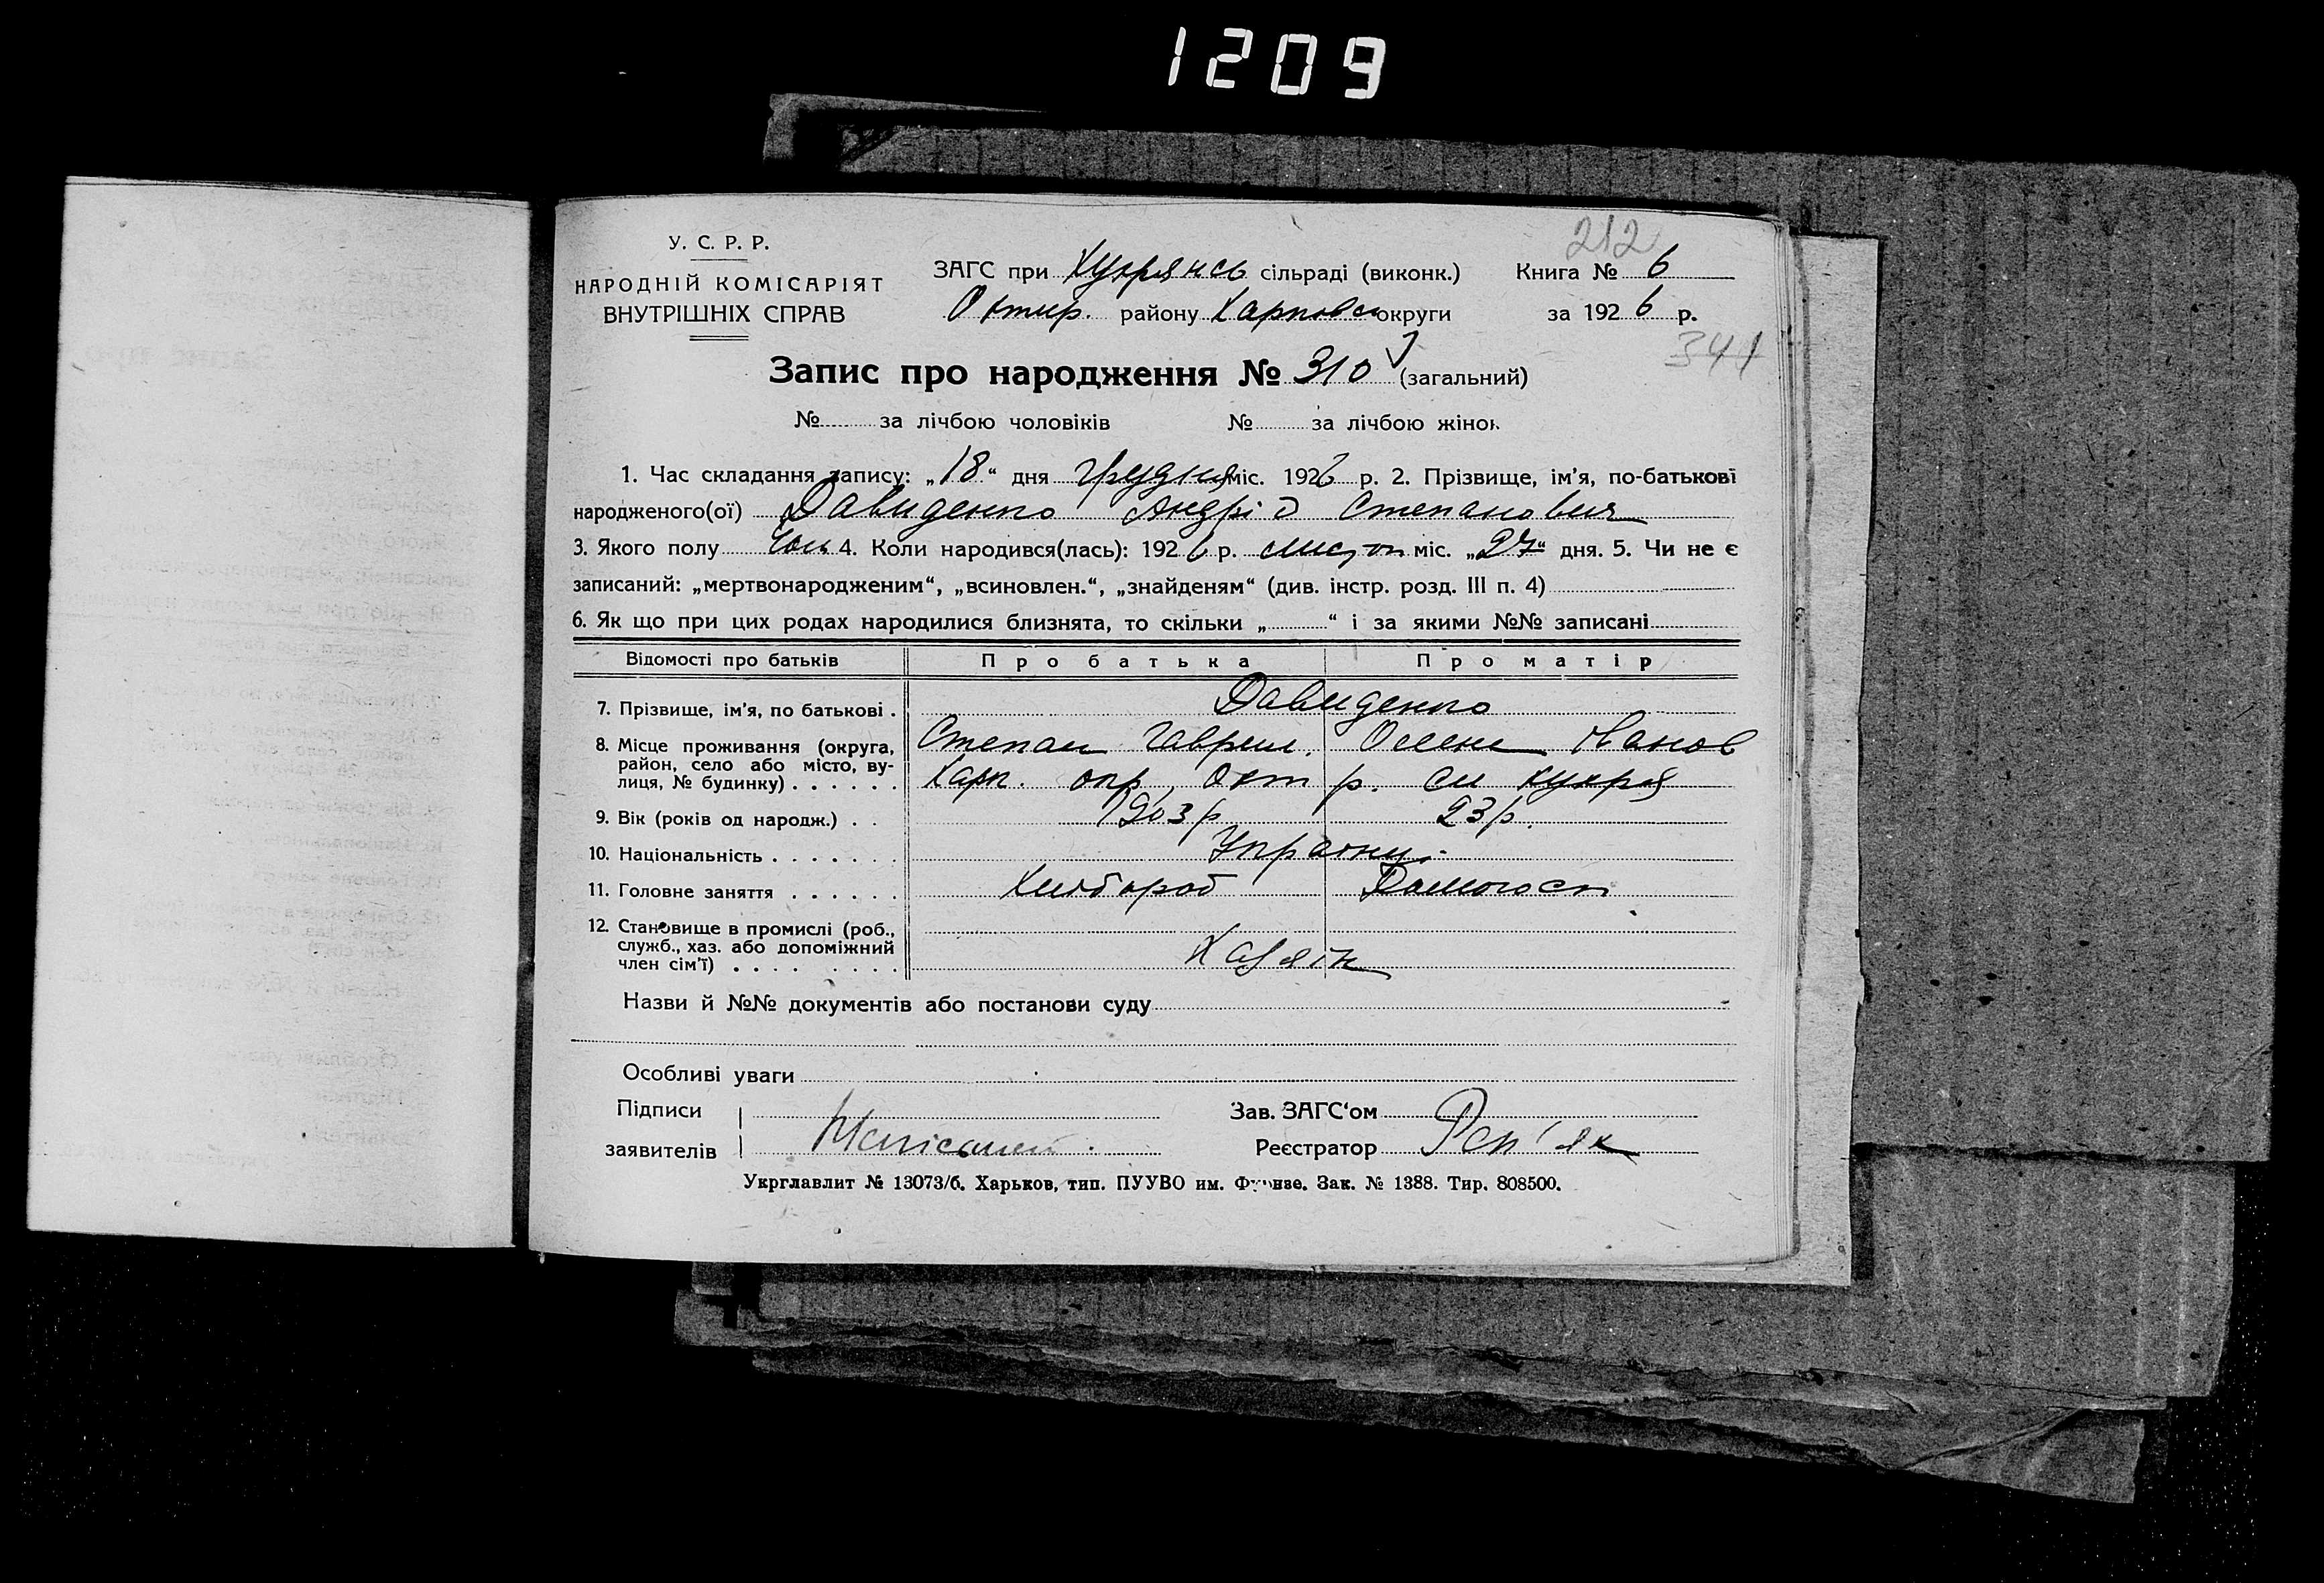 1209
У. С. Р. Р.
НАРОДНІЙ КОМІСАРІЯТ
ВНУТРІШНІХ СПРАВ
212
ЗАГС при Кукрянсь сільраді (виконк.) Книга № 6
Охтир. району Харповсь округи за 1926 р.
341
Запис про народження № 310 (загальний)
№ за лічбою чоловіків № за лічбою жінок
1. Час складання запису: „18“ дня грудня міс. 1926 р. 2. Прізвище, ім'я, по-батькові
народженого(ої) Давиденко Андрій Степанович
3. Якого полу Чол 4. Коли народився(лась): 1926 р. листоп міс. „27“ дня. 5. Чи не є
записаний: „мертвонародженим“, „всиновлен.“, „знайденям“ (див. інстр. розд. III п. 4)
6. Як що при цих родах народилися близнята, то скільки „ “ і за якими №№ записані
Відомості про батьків Про батька Про матір
7. Прізвище, ім'я, по батькові . Давиденко
Степан Гаврил. Олена Іванов
8. Місце проживання (округа, район, село або місто, вулиця, № будинку) . . . . . . Харк. окр, Охт р. сл Кукря
9. Вік (років од народж.) . . 1903 р 23 р.
10. Національність . . . . . . . Украінц.
11. Головне заняття . . . . . . Хлібороб Домогосп
12. Становище в промислі (роб.,
служб., хаз. або допоміжний
член сім'ї) . . . . . . . . Хазяін
Назви й №№ документів або постанови суду
Особливі уваги
Підписи Зав. ЗАГС'ом
заявителів Реєстратор Реп'як
Укрглавлит № 13073/б. Харьков, тип. ПУУВО им. Фрунзе. Зак. № 1388. Тир. 808500.